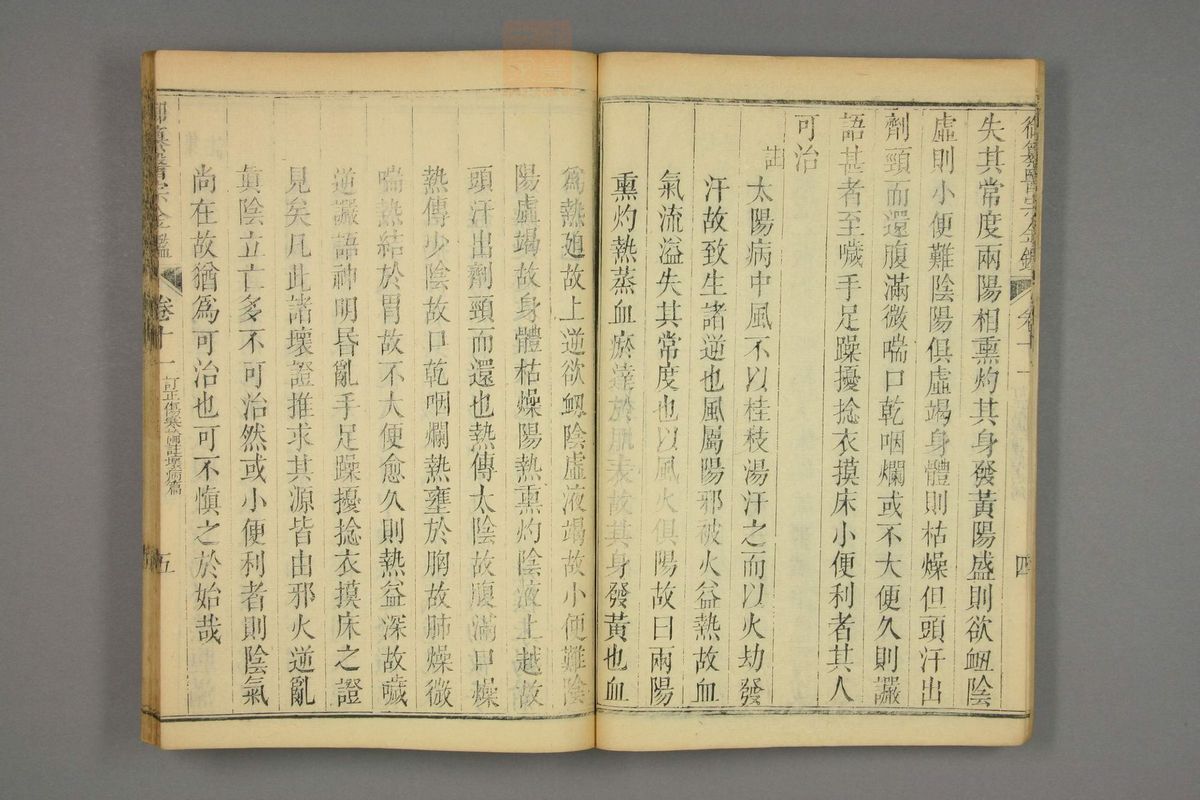 御纂醫宗金鑑 卷十一 四
失其常度兩陽相熏灼其身發黃陽盛則欲衄陰
虛則小便難陰陽俱虛竭身體則枯燥但頭汗出
劑頸而還腹滿微喘口乾咽爛或不大便久則讝
語甚者至噦手足躁擾捻衣摸床小便利者其人
可治
註
太陽病中風不以桂枝湯汗之而以火劫發
汗故致生諸逆也風屬陽邪被火益熱故血
氣流溢失其常度也以風火俱陽故曰兩陽
熏灼熱蒸血瘀達於肌表故其身發黃也血
為熱廹故上逆欲衄陰虛液竭故小便難陰
陽虛竭故身體枯燥陽熱熏灼陰液上越故
頭汗出劑頸而還也熱傳太陰故腹滿口燥
熱傳少陰故口乾咽爛熱壅於胸故肺燥微
喘熱結於胃故不大便愈久則熱益深故噦
逆讝語神明昏亂手足躁擾捻衣摸床之證
見矣凡此諸壞證推求其源皆由邪火逆亂
眞陰立亡多不可治然或小便利者則陰氣
尚在故猶為可治也可不慎之於始哉
御纂醫宗金鑑 卷十一 訂正傷寒論註壞病篇 五